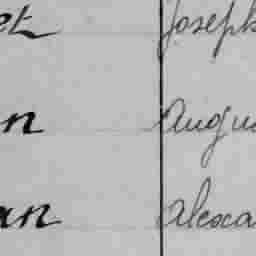 et Joseph
n Augu
an Alexa